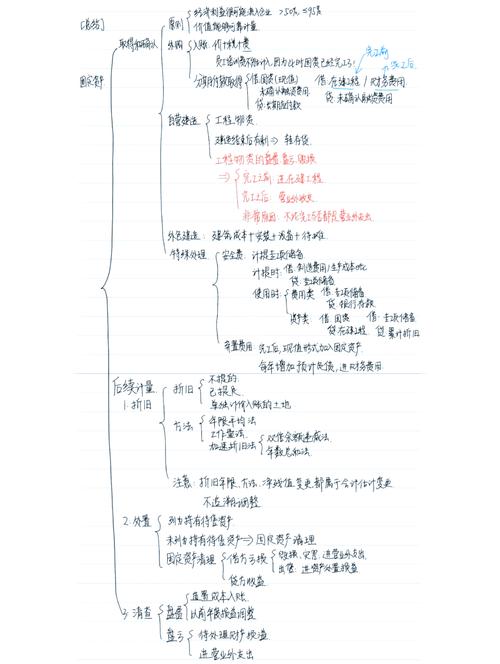 [总结]
固定资产
取得和确认
原则
经济利益很可能流入企业 >50% ≤95%
价值能够可靠计量
外购
入账 价+税+费
员工培训费不能计入,因为此时固资已经完工了!
分期付款取得
借:固资(现值)
未确认融资费用
贷:长期应付款
完工前
完工后
借:在建工程 / 财务费用
贷:未确认融资费用
自营建造
工程物资
建造结束后有剩 ⇒ 转存货
工程物资的盘盈盘亏、毁损
⇒ 完工前:进在建工程
完工后:营业外收支
非常原因:不论完工否都入营业外支出
外包建造:建筑成本+安装+设备+待摊
特殊处理
安全费:计提专项储备
计提时:借:制造费用/生产成本etc
贷:专项储备
使用时:
费用类 借:专项储备
贷:银行存款
资产类 借:固资 借:专项储备
贷:在建工程 贷:累计折旧
弃置费用 完工后,以现值形式加入固定资产
每年增加预计负债,进财务费用
后续计量
1.折旧
折旧
不提的
已提足
单独计价入账的土地
方法
年限平均法
工作量法
加速折旧法
双倍余额递减法
年数总和法
注意:折旧年限、方法、净残值变更都属于会计估计变更
不追溯调整
2.处置
划为持有待售资产
未划为持有待售资产 ⇒ 固定资产清理
固定资产清理
借方亏损
毁损、灾害:进营业外支出
出售:进资产处置损益
贷方收益
3.清查
盘盈
重置成本入账
以前年度损益调整
盘亏
待处理财产损溢
进营业外支出